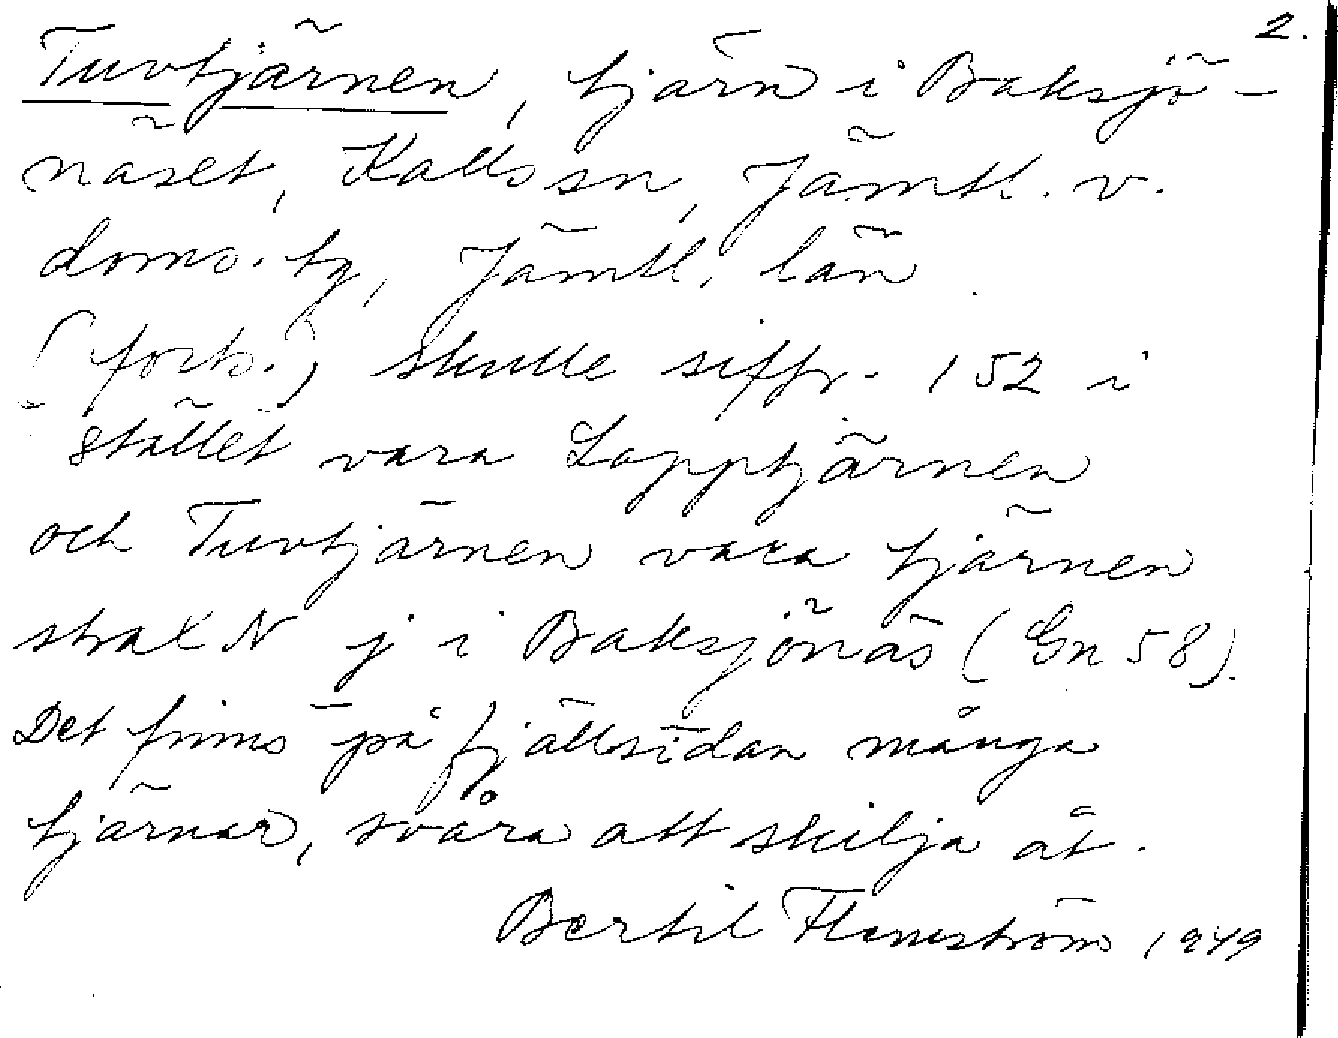 2.
Tuvtjärnen, tjärn i Baksjö-
näset, Kalls sn, Jämtl. v.
doms. tg, Jämtl. län
(forts.) skulle siffr. 152 i
stället vara Lapptjärnen
och Tuvtjärnen vara tjärnen
strax N j i Baksjönäs (Gn 58).
Det finns på fjällsidan många
tjärnar, svåra att skilja åt.
Bertil Flemström 1949